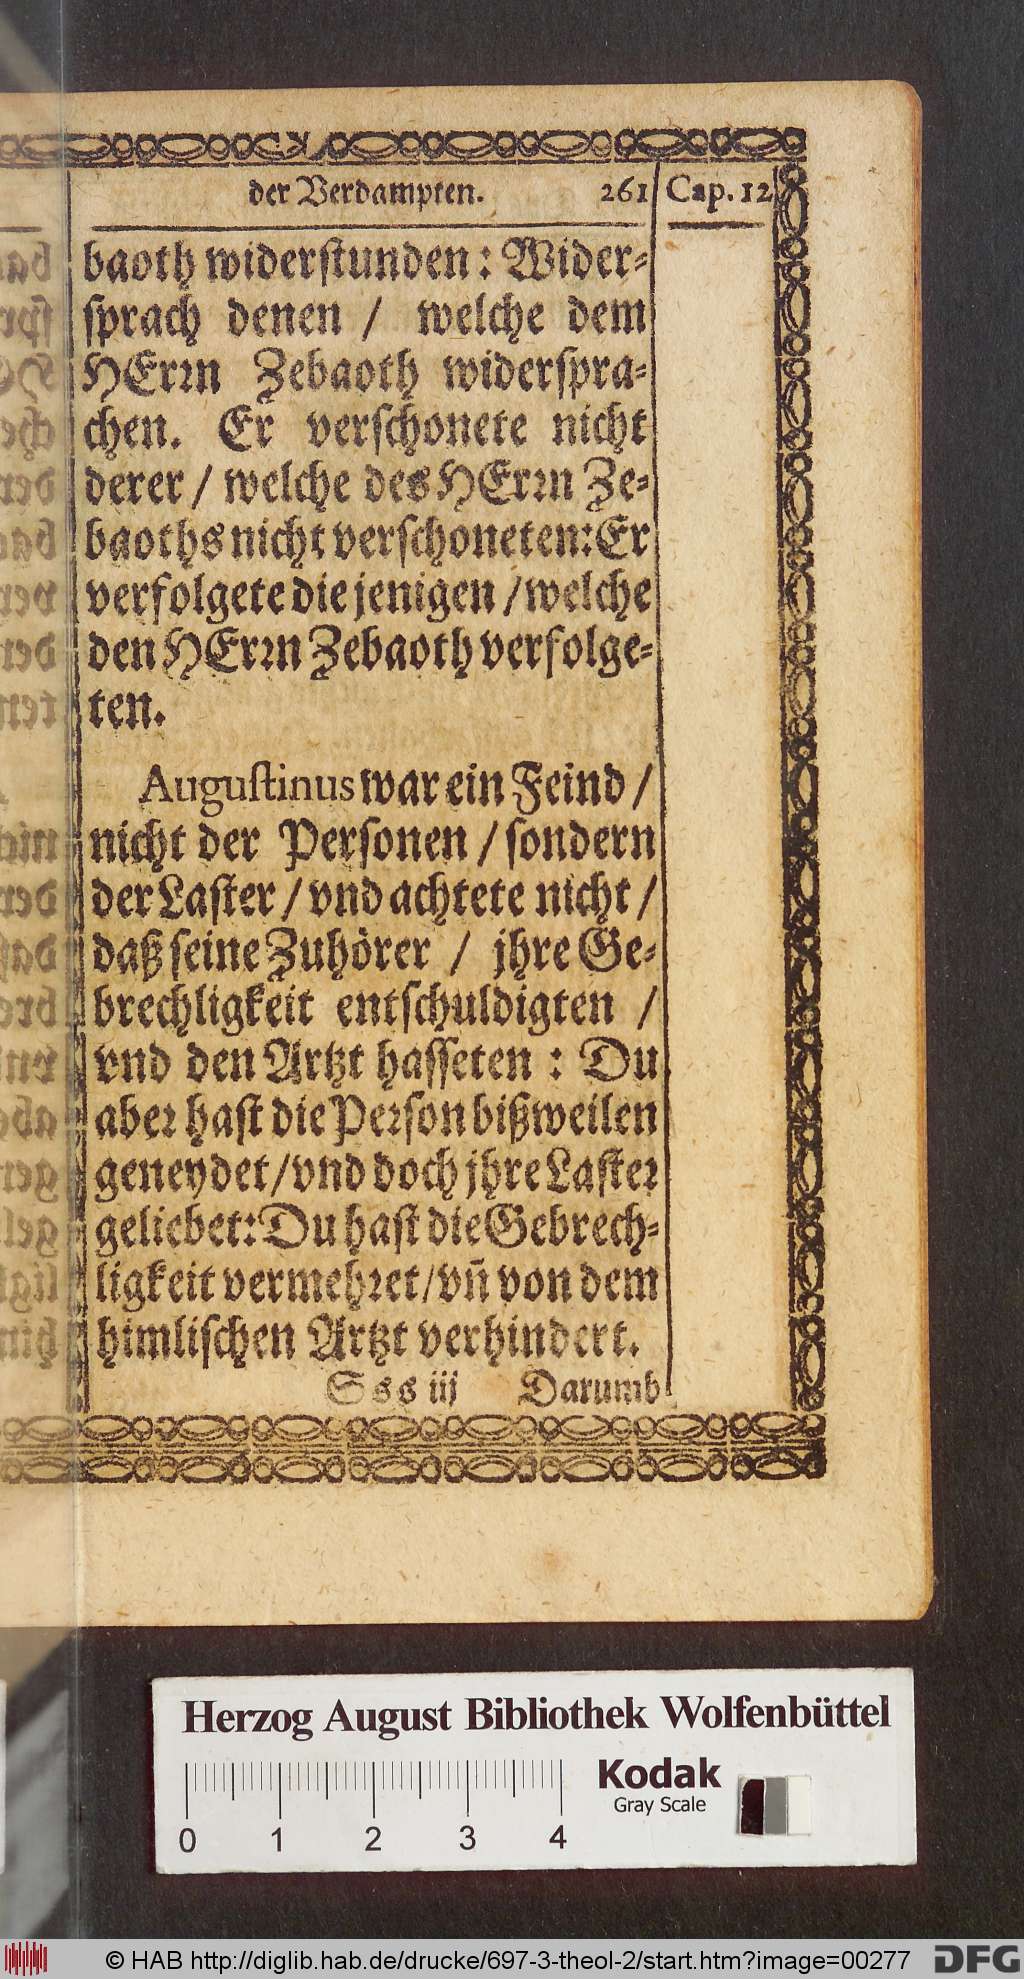 der Verdampten. 261 Cap. 12
baoth widerſtunden: Wider⸗
ſprach denen / welche dem
HErꝛn Zebaoth widerſpra⸗
chen. Er verſchonete nicht
derer / welche des HErꝛn Ze⸗
baoths nicht verſchoneten: Er
verfolgete die jenigen / welche
den HErꝛn Zebaoth verfolge⸗
ten.
Auguſtinus war ein Feind /
nicht der Perſonen / ſondern
der Laſter / vnd achtete nicht /
daß ſeine Zuhörer / jhre Ge⸗
brechligkeit entſchuldigten /
vnd den Artzt haſſeten : Du
abeꝛ haſt die Peꝛſon bißweilen
geneydet / vnd doch jhre Laſteꝛ
geliebet: Du haſt die Gebrech⸗
ligkeit vermehꝛet / vn̄ von dem
himliſchen Artzt verhindert.
S s s iij Darumb
Herzog August Bibliothek Wolfenbüttel
Kodak
Gray Scale
0 1 2 3 4
© HAB http://diglib.hab.de/drucke/697-3-theol-2/start.htm?image=00277 DFG